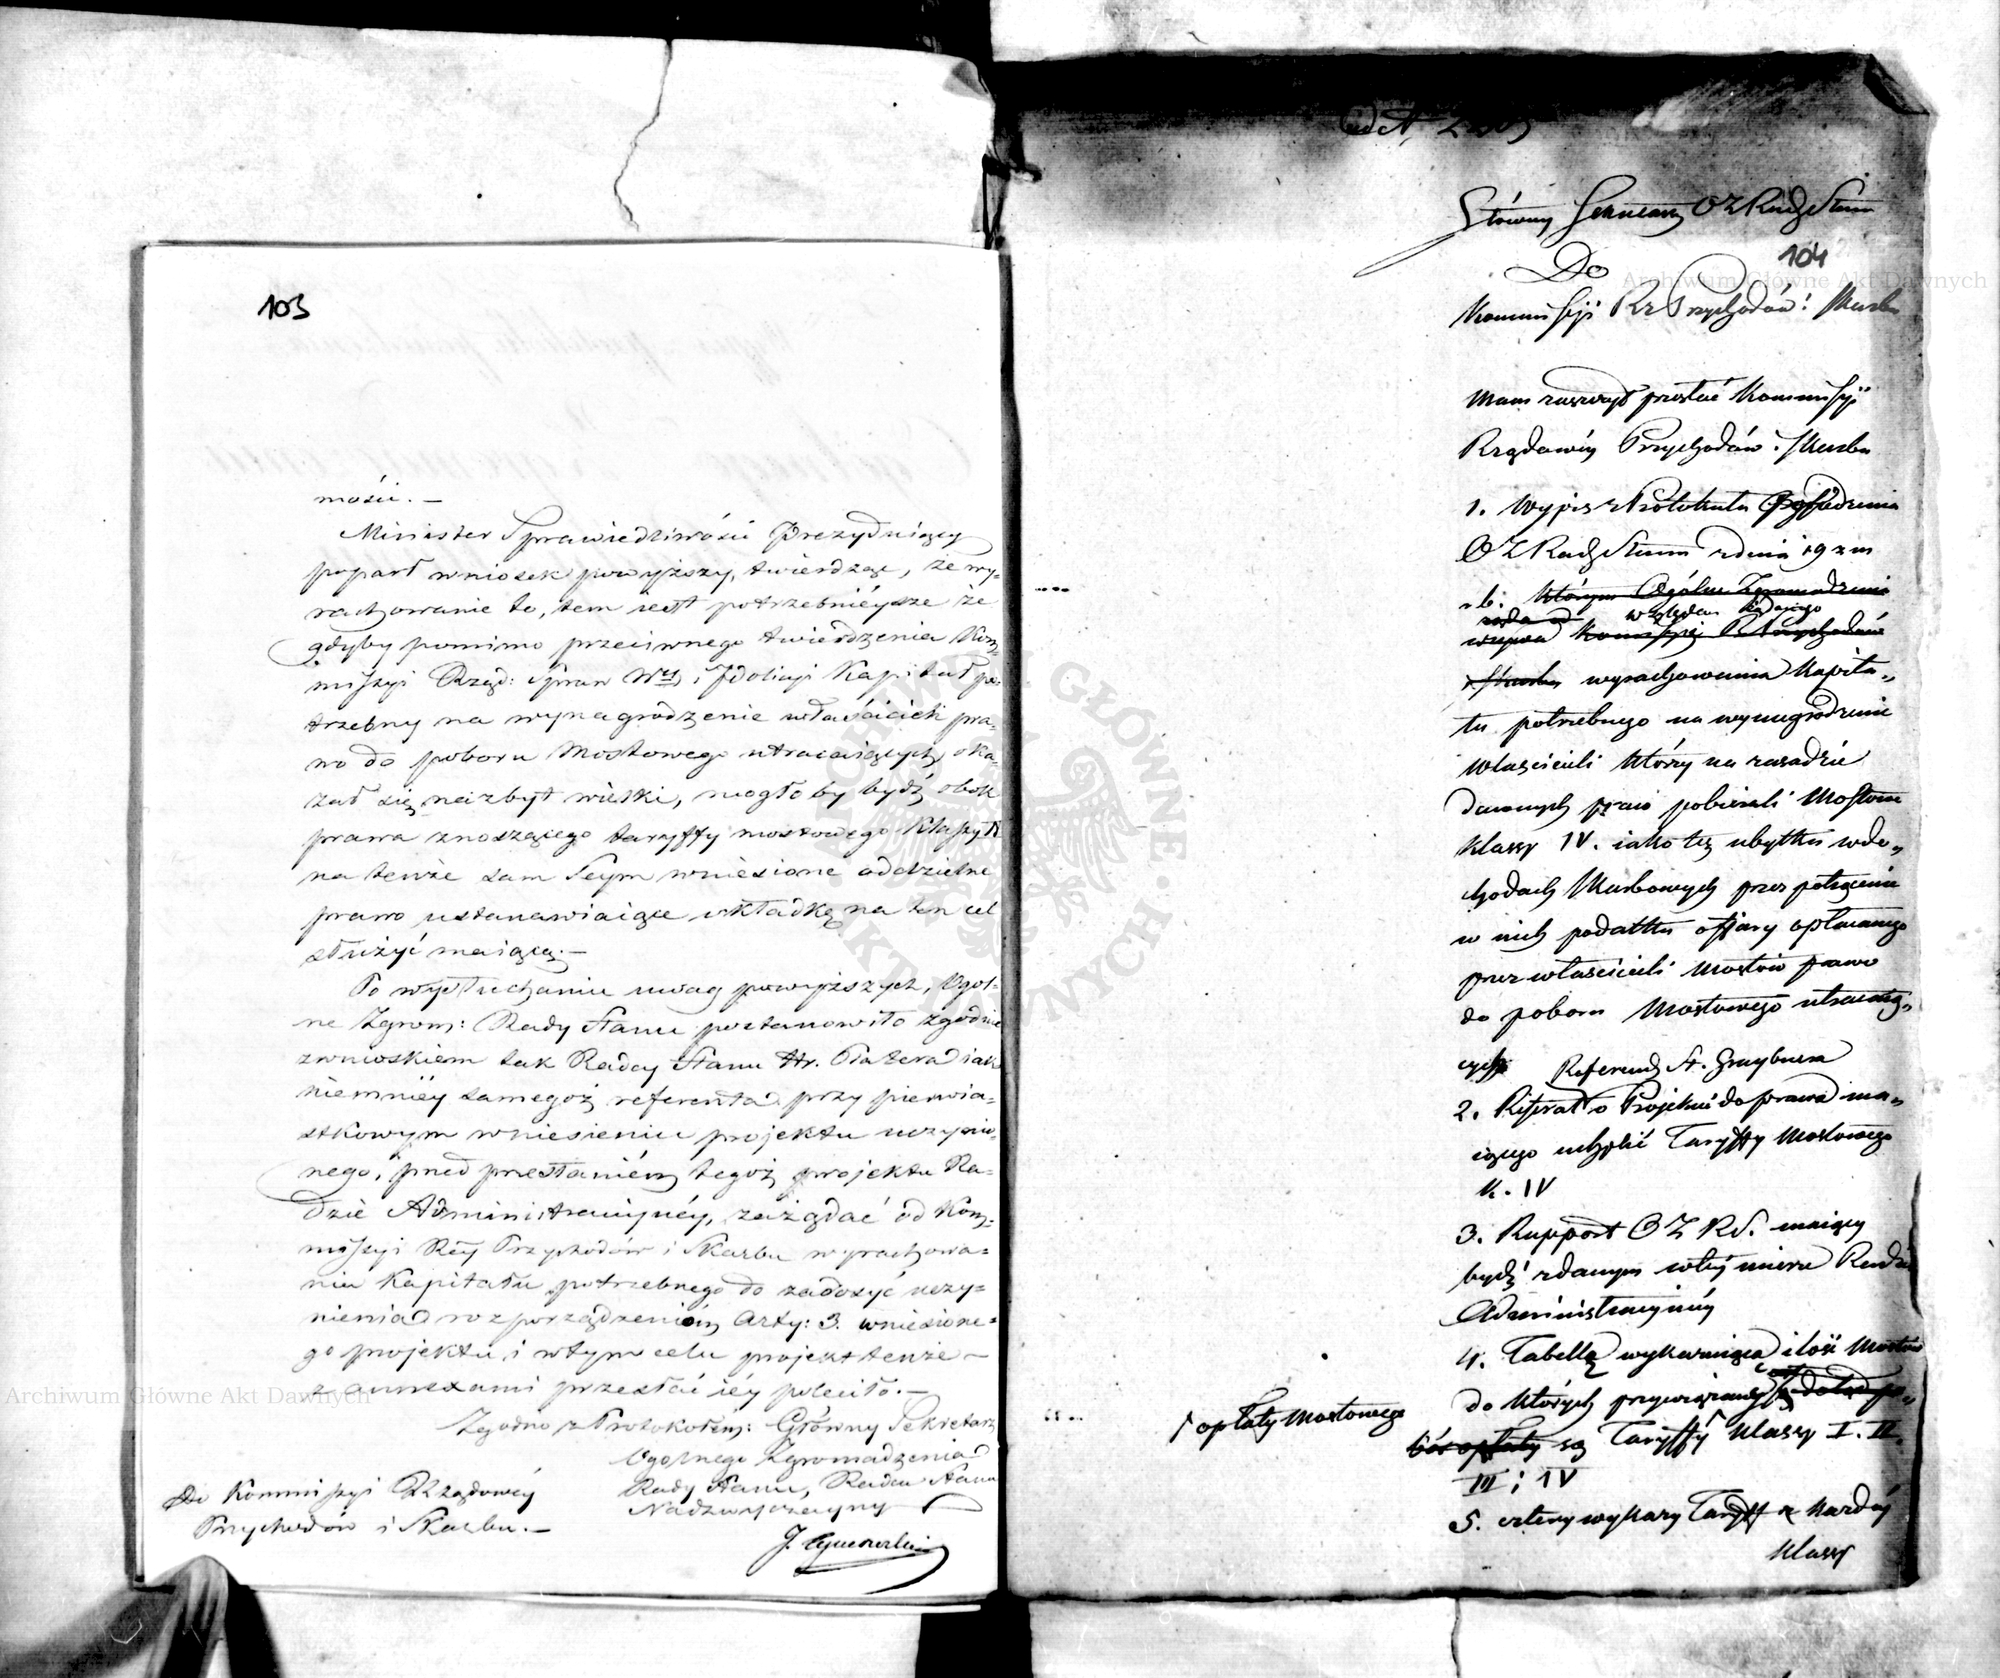 103
mości. —
Minister Sprawiedliwości Prezydujący
poparł wniosek powyższy, twierdząc, że wy-
rachowanie to, tem iest potrzebniéysze że
gdyby pomimo przeciwnego twierdzenia Kom-
missyi Rząd: Spraw Wew: i Policyi Kapitał po-
trzebny na wynagrodzenie właścicieli pra-
wo do poboru Mostowego utracaiących oka-
zał się nazbyt wielki, mogłoby bydź obok
prawa znoszącego taryffy mostowego Klassy IV
na tenże sam Seym wniesione oddzielne
prawo ustanawiaiące składkę na ten cel
służyć maiącą. —
Po wysłuchaniu uwag powyższych, Ogol-
ne Zgrom: Rady Stanu postanowiło zgodnie
z wnioskiem tak Radcy Stanu Hr. Platera iak
niemniéy samegoż referenta przy pierwia-
stkowym wniesieniu projektu uczynio-
nego, przed przesłaniém tegoż projektu Ra-
dzie Administracyinéy, zażądać od Kom-
missyi Rzéy Przychodów i Skarbu wyrachowa-
nia Kapitału potrzebnego do zadosyć uczy-
nienia rozporządzeniom Arty: 3. wniesione-
go projektu, i w tym celu projekt tenże —
z annexami przesłać iéy poleciło. —
Zgodno z Protokołem: Główny Sekretarz
Ogolnego Zgromadzenia
Rady Stanu, Radca Stanu
Nadzwyczayny
Do Kommissyi Rządowéy
Przychodów i Skarbu. —
J.
Główny Sekretarz O Z Rady Stanu
104
Do
Kommissyi Rz Przychodów i Skarbu
Mam zaszczyt przesłać Kommissyi
Rządowéy Przychodów i Skarbu
1. Wypis z Protokułu Posiedzenia
O Z Rady Stanu z dnia 19 z m
r b: którym Ogólne Zgromadzenie
żąda od względem żądanego
wzywa Kommissyę R Przychodów
i Skarbu wyrachowania Kapita-
łu potrzebnego na wynagrodzenie
właścicieli którzy na zasadzie
dawnych praw pobierali Mostowe
Klassy IV. iako też ubytku w do-
chodach Skarbowych przez potrącenie
w nich podatku offiary opłacanego
przez właścicieli Mostów prawo
do poboru Mostowego utracaią-
cych Referend St. Grzybowa
2. Referat o Projekcie do prawa ma-
iącego uchylić Taryffy Mostowego
K. IV
3. Rapport O Z R S. maiący
bydź zdanym w téy mierze Radzie
Administracyinéy
4. Tabellę wykazuiącą ilość Mostów
do których przywiązane są dotąd po-
opłaty Mostowego
bór opłaty są Taryffy Klassy I. II.
III i IV
5. cztery wykazy Taryff z każdéj
Klassy
Archiwum Główne Akt Dawnych
Archiwum Główne Akt Dawnych
ARCHIWUM GŁÓWNE AKT DAWNYCH